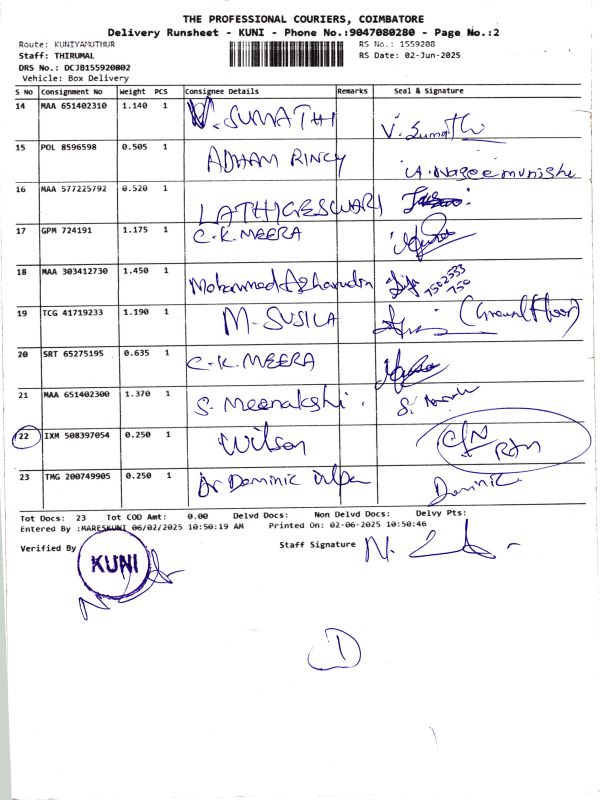 THE PROFESSIONAL COURIERS, COIMBATORE
Delivery Runsheet - KUNI - Phone No.:9047080280 - Page No.:2
Route: KUNIYAMUTHUR RS No.: 1559208
Staff: THIRUMAL RS Date: 02-Jun-2025
DRS No.: DCJB155920802
Vehicle: Box Delivery
S NO Consignment No Weight PCS Consignee Details Remarks Seal & Signature
14 MAA 651402310 1.140 1 V. SUMATHI V. Sumathi
15 POL 8596598 0.505 1 ADHAM RINCY A. Nazeemunisha
16 MAA 577225792 0.520 1 LATHIGESWARI
17 GPM 724191 1.175 1 C.K. MEERA
18 MAA 303412730 1.450 1 Mohammed Azharudin
19 TCG 41719233 1.190 1 M. SUSILA (Ground Floor)
20 SRT 65275195 0.635 1 C.K. MEERA
21 MAA 651402300 1.370 1 S. Meenakshi. S.
22 IXM 508397054 0.250 1 Wilson C/N RTN
23 TMG 200749905 0.250 1 Dr Dominic Dominic
Tot Docs: 23 Tot COD Amt: 0.00 Delvd Docs: Non Delvd Docs: Delvy Pts:
Entered By :MARESKUNI 06/02/2025 10:50:19 AM Printed On: 02-06-2025 10:50:46
Verified By Staff Signature
KUNI
1